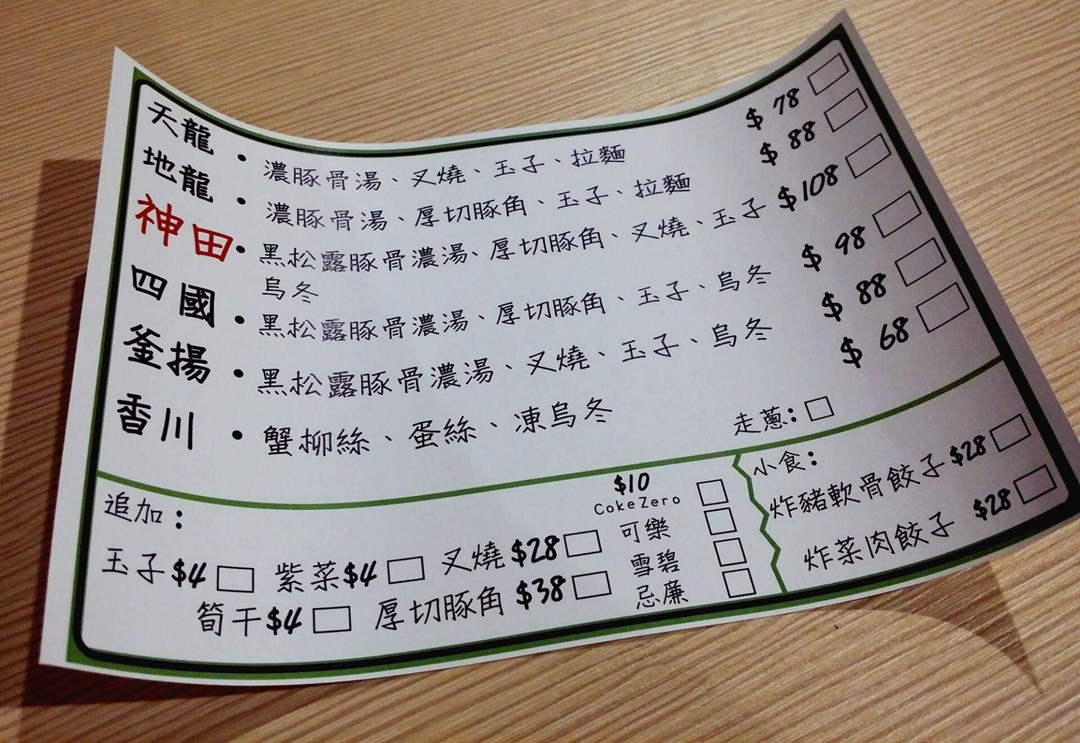 天龍 • 濃豚骨湯、叉燒、玉子、拉麵 $ 78
地龍 • 濃豚骨湯、厚切豚角、玉子、拉麵 $ 88
神田 • 黑松露豚骨濃湯、厚切豚角、叉燒、玉子 $108
烏冬
四國 • 黑松露豚骨濃湯、厚切豚角、玉子、烏冬 $ 98
釜揚 • 黑松露豚骨濃湯、叉燒、玉子、烏冬 $ 88
香川 • 蟹柳絲、蛋絲、凍烏冬 $ 68
走蔥:
追加:
玉子$4 紫菜$4 叉燒$28
筍干$4 厚切豚角 $38
$10
Coke Zero
可樂
雪碧
忌廉
小食:
炸豬軟骨餃子 $28
炸菜肉餃子 $28